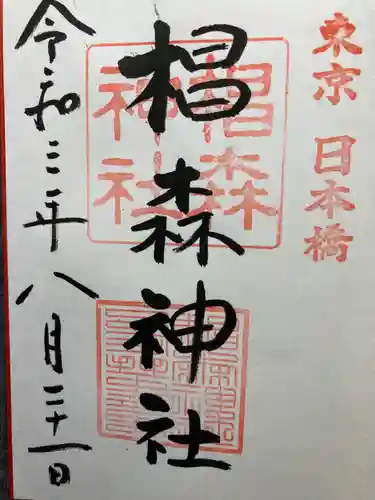 東京 日本橋
椙森神社
椙森
神社
令和三年八月二十一日